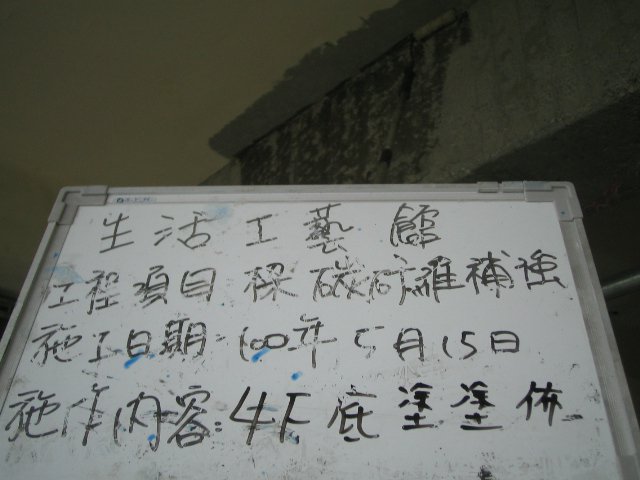 生活工藝館
工程項目 樑碳纖維補強
施工日期:100年5月15日
施作內容:4F底塗塗佈